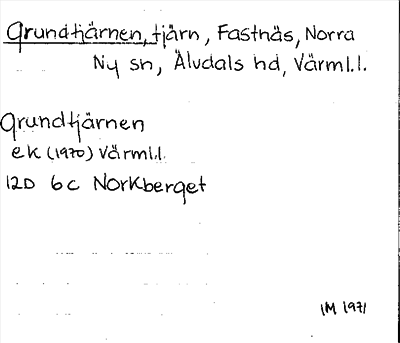 Grundtjärnen, tjärn, Fastnäs, Norra
Ny sn, Älvdals hd, Värml.l.
Grundtjärnen
ek (1970) Värml.l.
12D 6c Norkberget
IM 1971